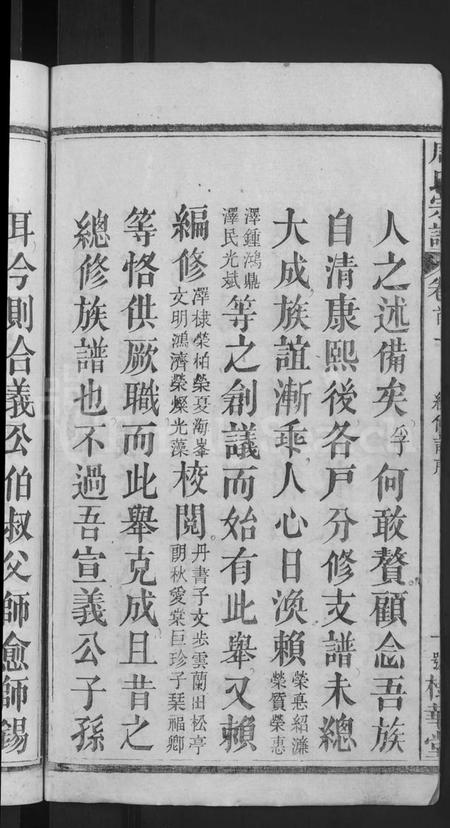 周氏宗譜 卷首一
人之述備矣孚何敢贅顧念吾族
自清康熙後各戶分修支譜未總
大成族誼漸乖人心日渙賴榮惪紹濂榮質榮惠
澤鍾鴻鼎澤民光斌等之創議而始有此舉又賴
編修澤棣榮柏榮夏海峯文明鴻濟榮燦光藻校閱丹書子文步雲蘭田松亭朗秋愛棠巨珍子栞福卿
等恪供厥職而此舉克成且昔之
總修族譜也不過吾宣義公子孫
耳今則合義公伯叔父師愈師錫